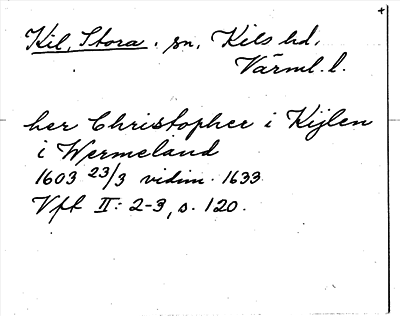 Kil, Stora. sn, Kils hd,
Värml. l.
her Christopher i Kijlen
i Wermeland
1603 23/3 vidim. 1633
Vft II: 2-3, s. 120.